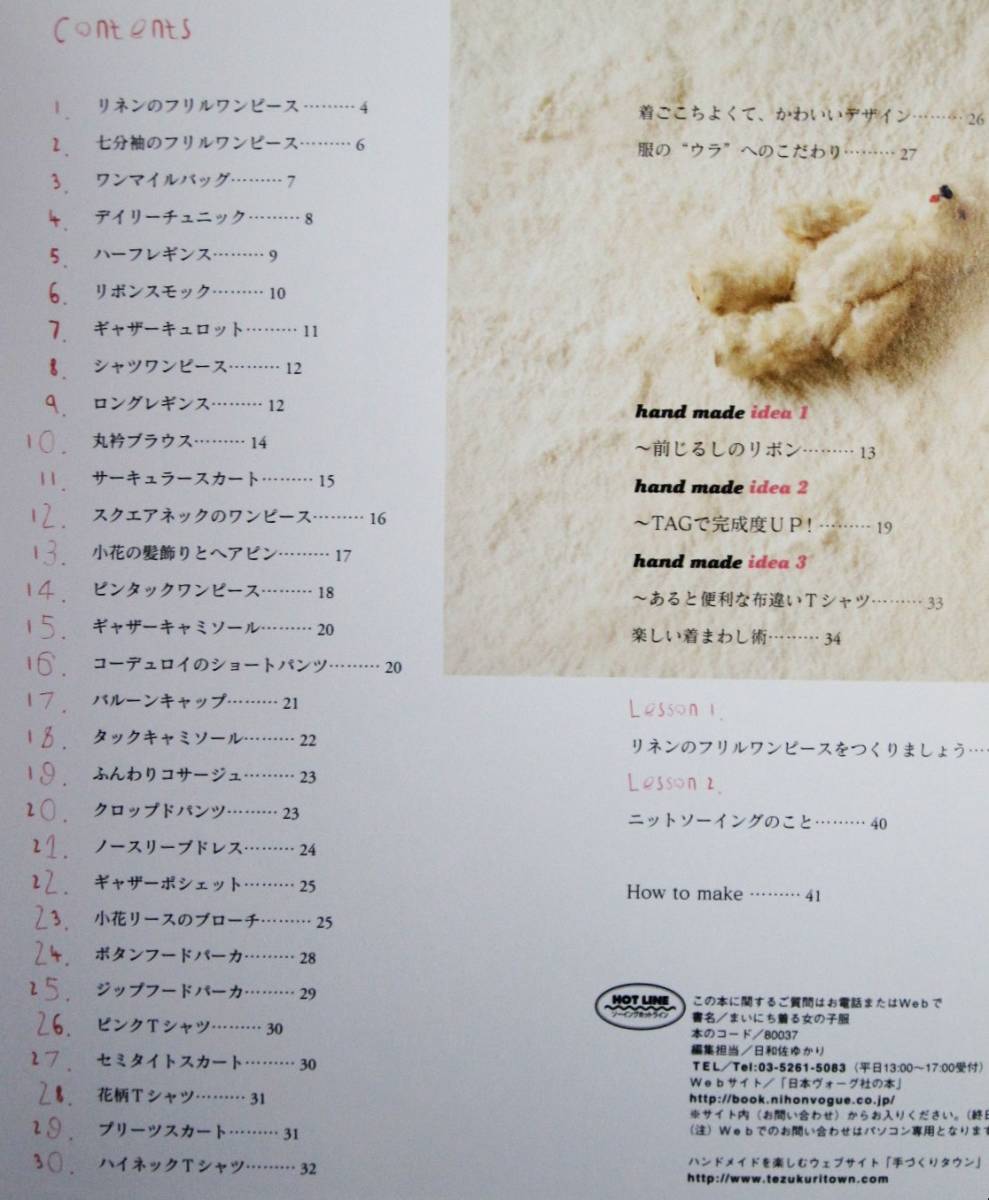 contents
1. リネンのフリルワンピース………4
2. 七分袖のフリルワンピース………6
3. ワンマイルバッグ………7
4. デイリーチュニック………8
5. ハーフレギンス………9
6. リボンスモック………10
7. ギャザーキュロット………11
8. シャツワンピース………12
9. ロングレギンス………12
10. 丸衿ブラウス………14
11. サーキュラースカート………15
12. スクエアネックのワンピース………16
13. 小花の髪飾りとヘアピン………17
14. ピンタックワンピース………18
15. ギャザーキャミソール………20
16. コーデュロイのショートパンツ………20
17. バルーンキャップ………21
18. タックキャミソール………22
19. ふんわりコサージュ………23
20. クロップドパンツ………23
21. ノースリーブドレス………24
22. ギャザーポシェット………25
23. 小花リースのブローチ………25
24. ボタンフードパーカ………28
25. ジップフードパーカ………29
26. ピンクTシャツ………30
27. セミタイトスカート………30
28. 花柄Tシャツ………31
29. プリーツスカート………31
30. ハイネックTシャツ………32
着ごこちよくて、かわいいデザイン………26
服の“ウラ”へのこだわり………27
hand made idea 1
〜前じるしのリボン………13
hand made idea 2
〜TAGで完成度UP!………19
hand made idea 3
〜あると便利な布違いTシャツ………33
楽しい着まわし術………34
Lesson 1.
リネンのフリルワンピースをつくりましょう…
Lesson 2.
ニットソーイングのこと………40
How to make ………41
HOT LINE
ソーイングホットライン
この本に関するご質問はお電話またはWebで
書名／まいにち着る女の子服
本のコード／80037
編集担当／日和佐ゆかり
TEL／Tel:03-5261-5083（平日13:00〜17:00受付）
Webサイト／「日本ヴォーグ社の本」
http://book.nihonvogue.co.jp/
※サイト内（お問い合わせ）からお入りください。（終日
（注）Webでのお問い合わせはパソコン専用となります
ハンドメイドを楽しむウェブサイト「手づくりタウン」
http://www.tezukuritown.com